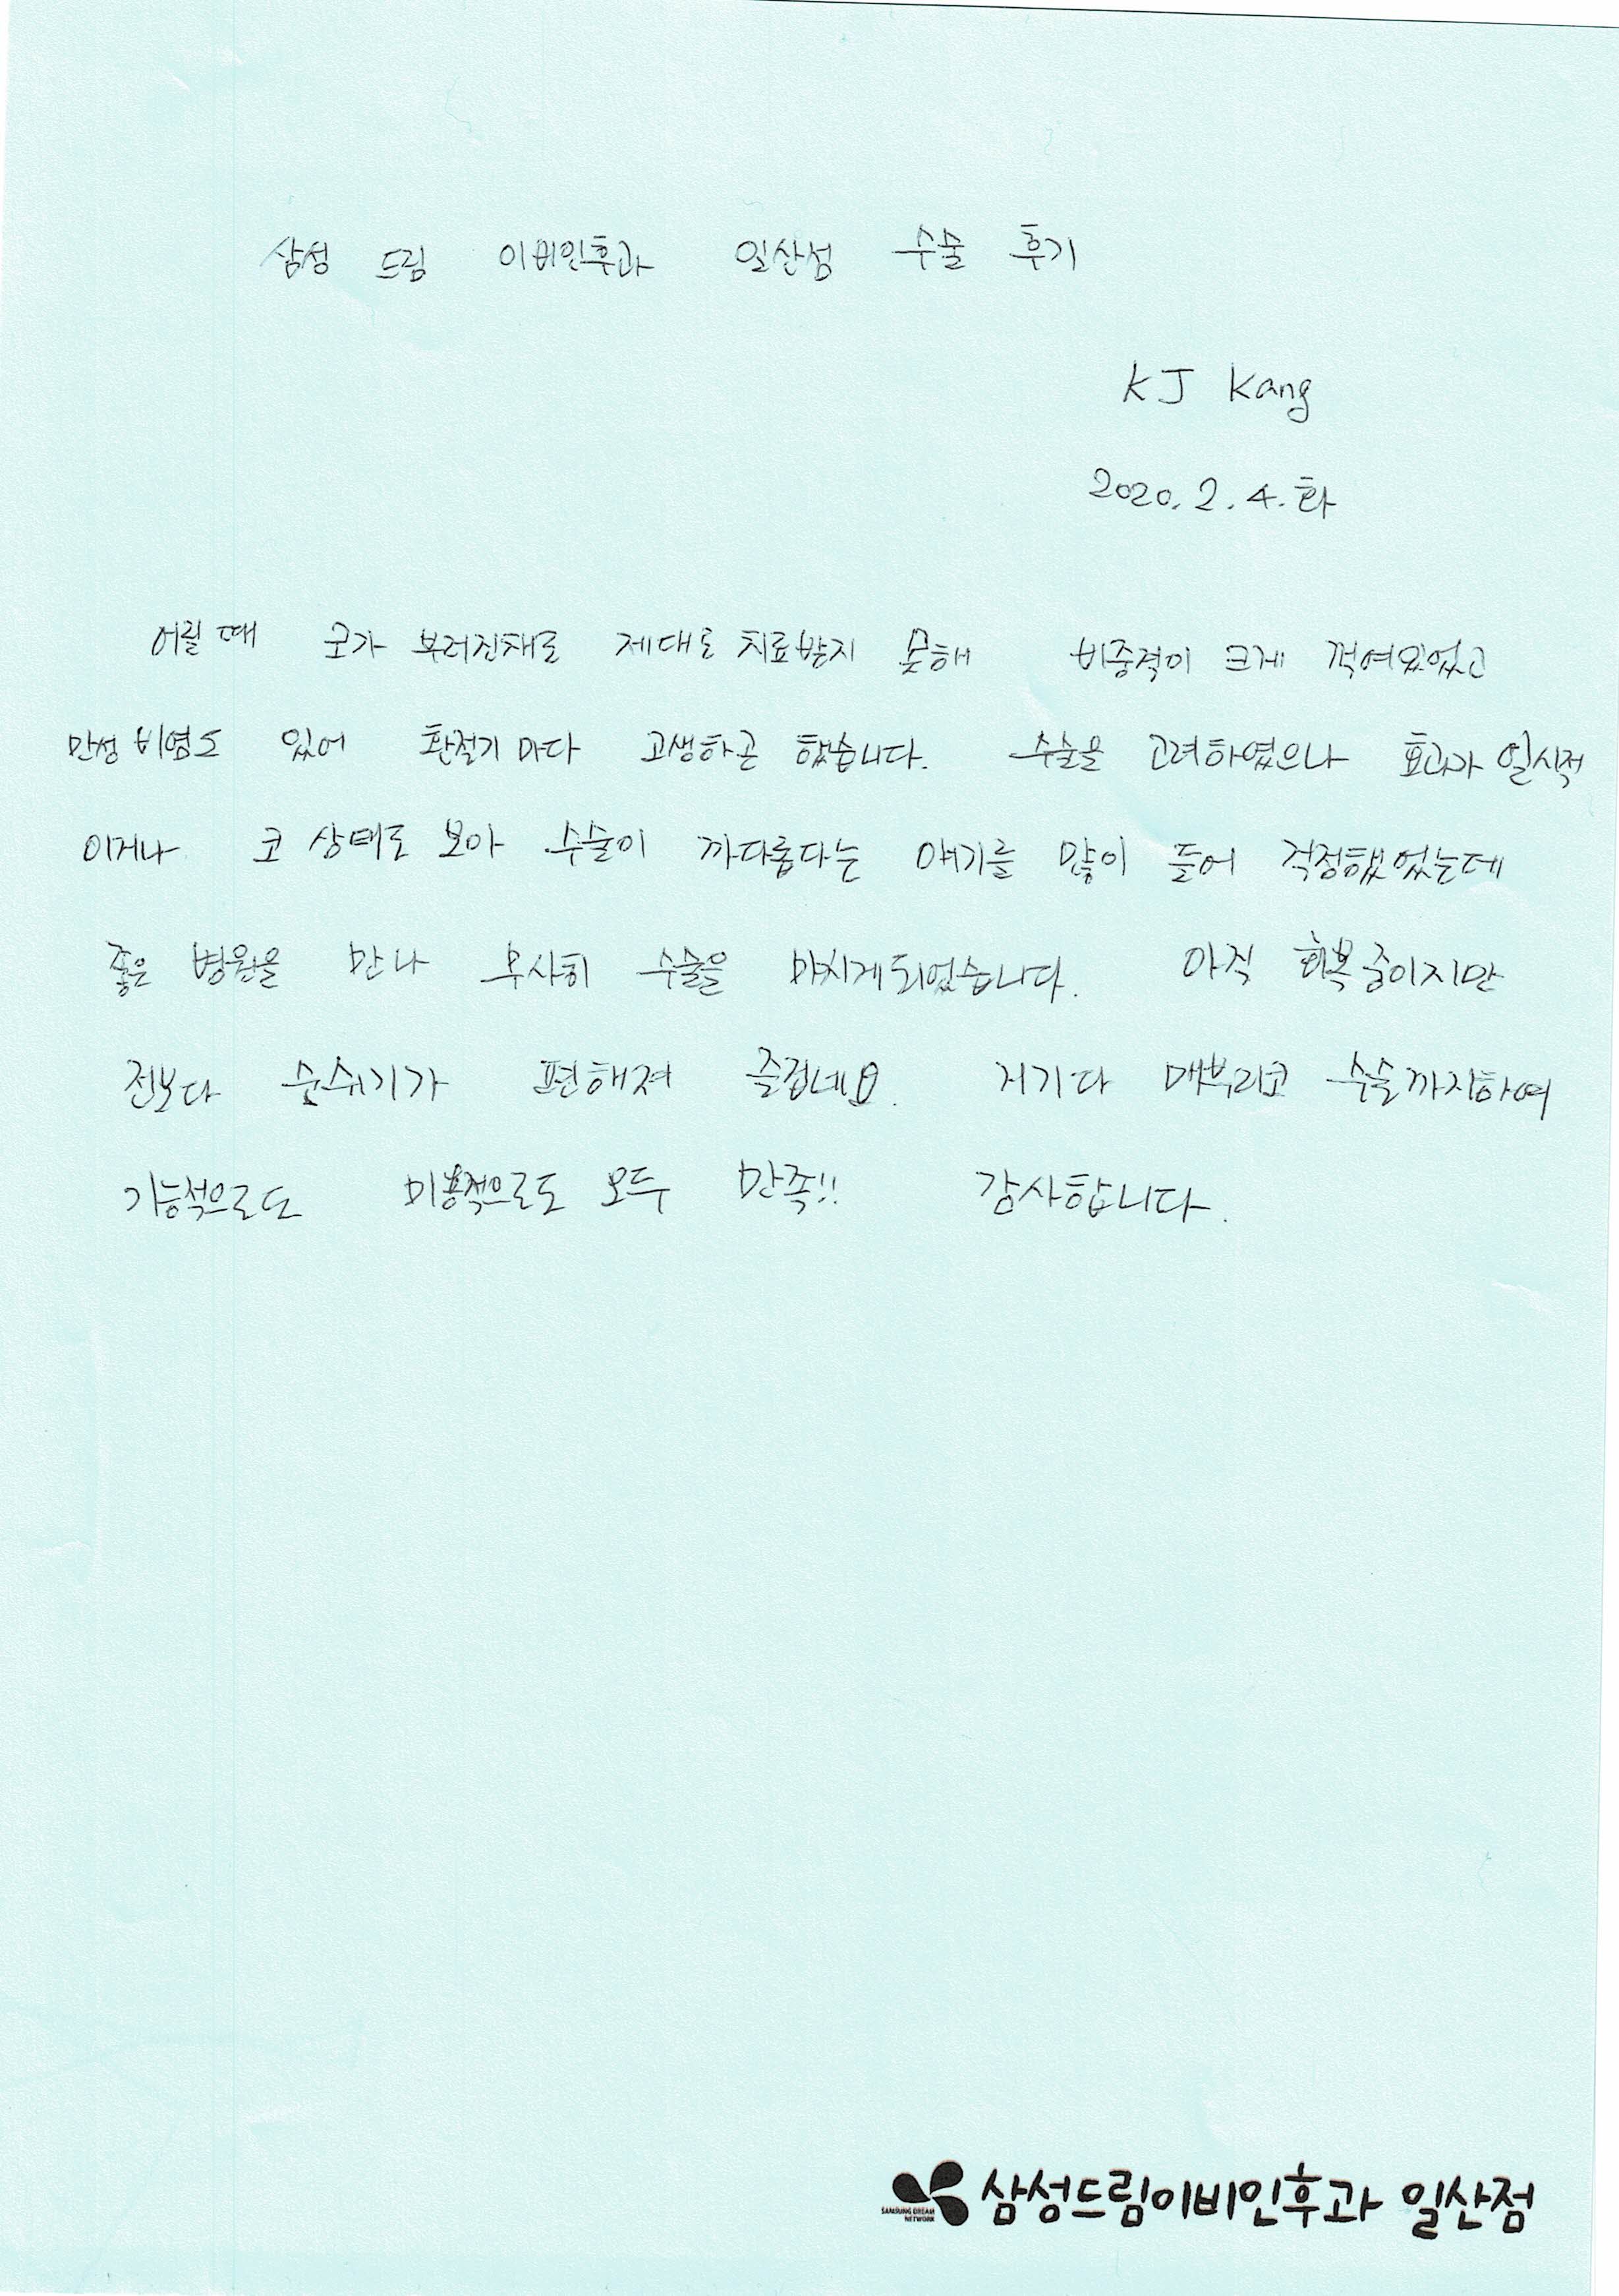 삼성 드림 이비인후과 일산점 수술 후기
KJ Kang
2020. 2. 4. 화
어릴 때 코가 부러진채로 제대로 치료받지 못해 비중격이 크게 꺽여있었고
만성 비염도 있어 환절기 마다 고생하곤 했습니다. 수술을 고려하였으나 효과가 일시적
이거나 코 상태로 보아 수술이 까다롭다는 얘기를 많이 들어 걱정했었는데
좋은 병원을 만나 무사히 수술을 마치게되었습니다. 아직 회복 중이지만
전보다 숨쉬기가 편해져 즐겁네요. 거기다 매부리코 수술까지하여
기능적으로도 미용적으로도 모두 만족!! 감사합니다.
SAMSUNG DREAM NETWORK 삼성드림이비인후과 일산점